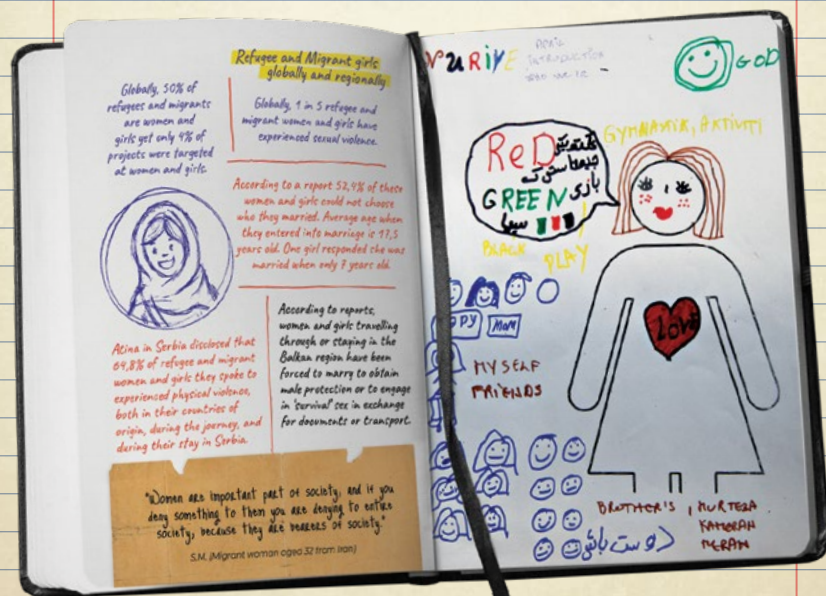 Refugee and Migrant girls
globally and regionally.
Globally, 50% of
refugees and migrants
are women and
girls yet only 4% of
projects were targeted
at women and girls.
Globally, 1 in 5 refugee and
migrant women and girls have
experienced sexual violence.
According to a report 52,4% of these
women and girls could not choose
who they married. Average age when
they entered into marriage is 17,5
years old. One girl responded she was
married when only 7 years old.
Atina in Serbia disclosed that
64,8% of refugee and migrant
women and girls they spoke to
experienced physical violence,
both in their countries of
origin, during the journey, and
during their stay in Serbia.
According to reports,
women and girls travelling
through or staying in the
Balkan region have been
forced to marry to obtain
male protection or to engage
in 'survival' sex in exchange
for documents or transport.
"Women are important part of society, and if you
deny something to them you are denying to entire
society, because they are bearers of society."
S.M. (Migrant woman aged 32 from Iran)
NURIYE
INTRODUCTION
WHO WE'RE
GOD
GYMNASTIK, AKTIVITI
ReD
GREEN
بازی
سیا
BLACK
PLAY
LOVE
MOM
MYSELF
FRIENDS
BROTHER'S, MURTEZA
KAMERAN
MERAM
دوست